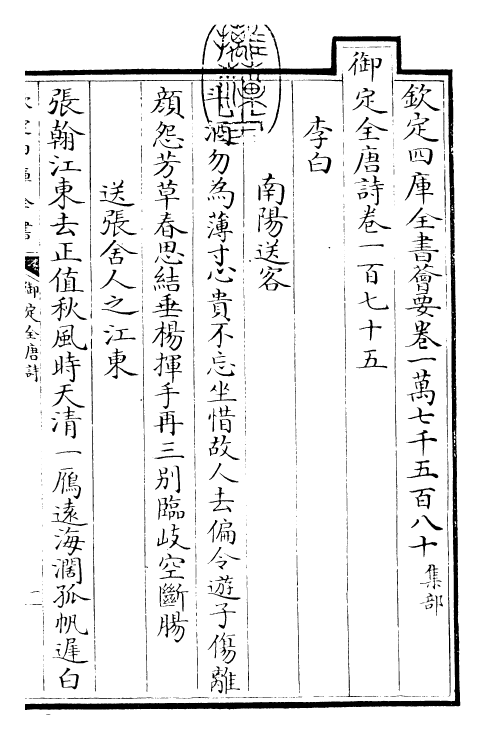 欽定四庫全書薈要卷一萬七千五百八十 集部
御定全唐詩卷一百七十五
李白
南陽送客
斗酒勿為薄寸心貴不忘坐惜故人去偏令遊子傷離
顔怨芳草春思結垂楊揮手再三別臨岐空斷腸
送張舍人之江東
張翰江東去正值秋風時天清一鴈遠海濶孤帆遲白
御定全唐詩